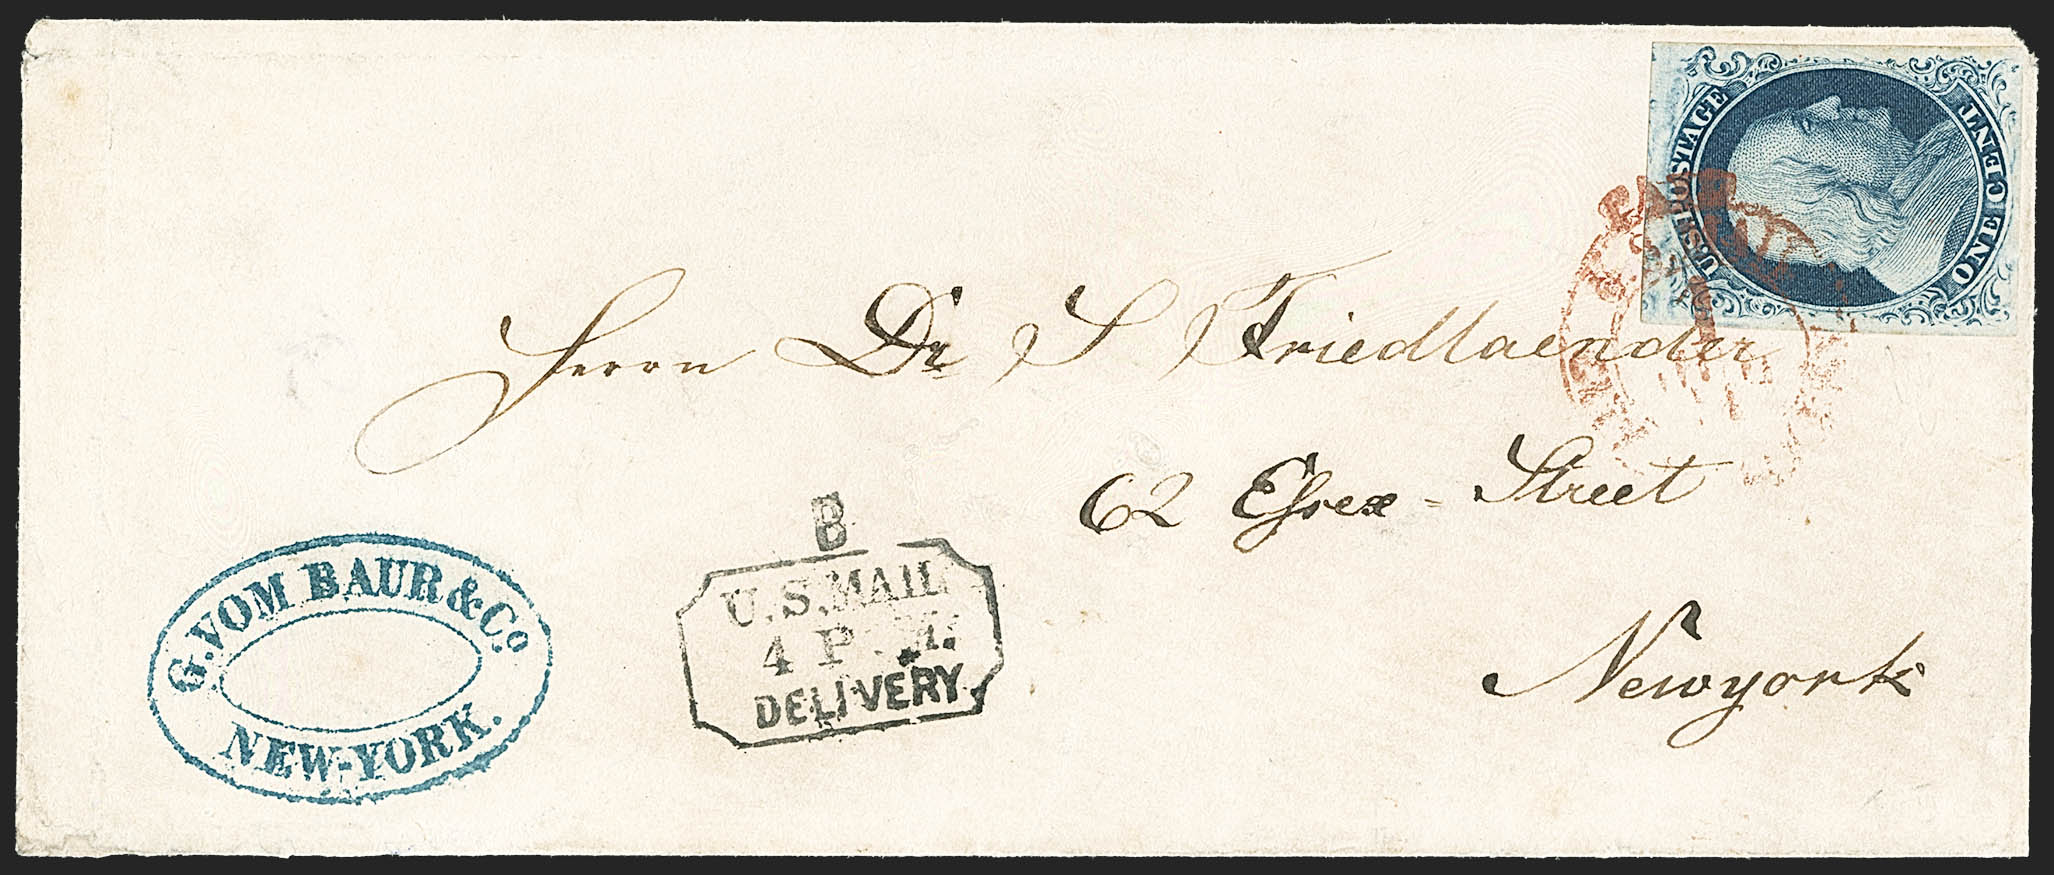 U.S. POSTAGE
ONE CENT
Herrn Dr. S Friedlaender
62 Essex - Street
Newyork
B
U.S. MAIL
4 P. M.
DELIVERY.
G. VOM BAUR & Co.
NEW-YORK.